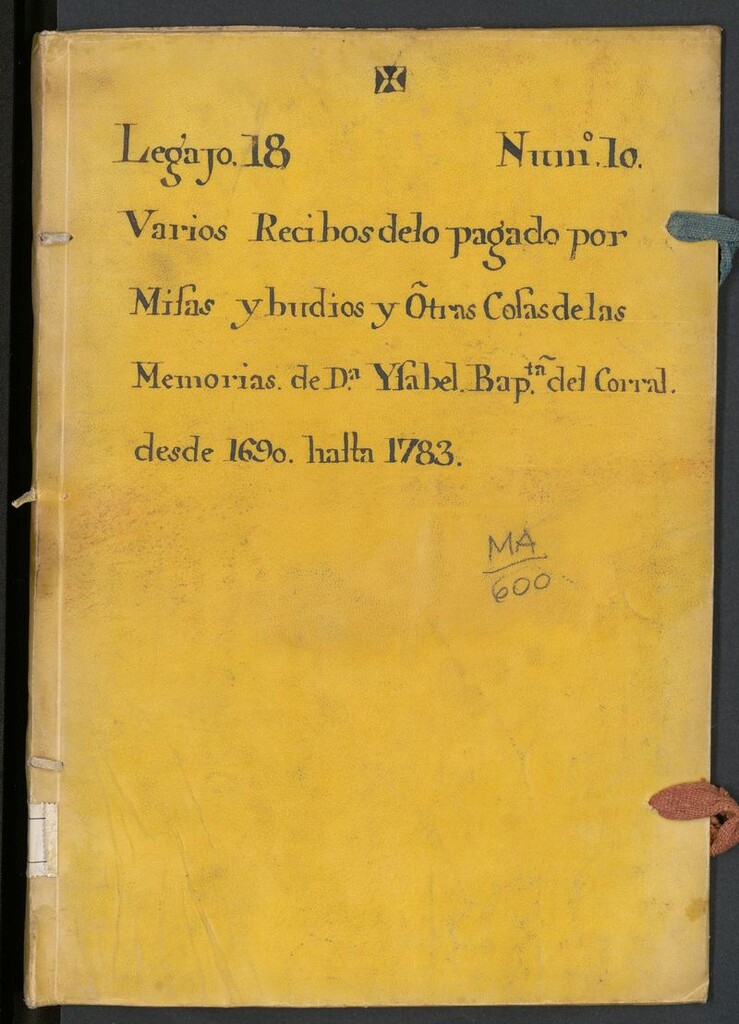 Legajo. 18 Numº. 10.
Varios Recibos delo pagado por
Miſas y budios y Õtras Coſas de las
Memorias. de D.ª Yſabel. Bap.tñ del Corral.
desde 1690. haſta 1783.
MA
600